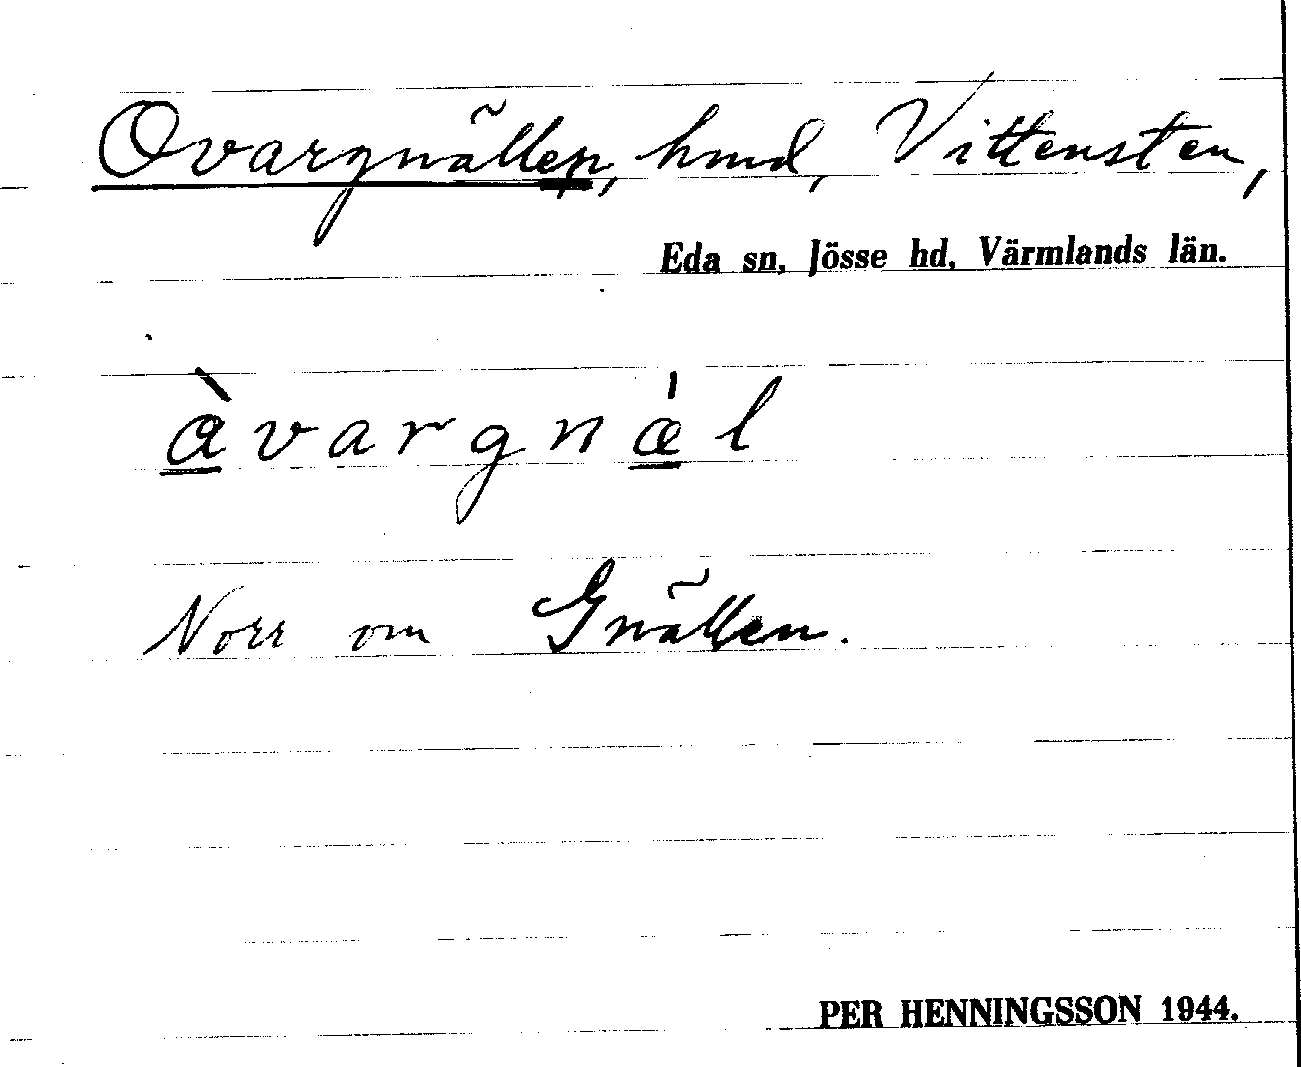 Ovargnällen, hmd, Vittensten,
Eda sn, Jösse hd, Värmlands län.
àvargnǽl
Norr om Gnällen.
PER HENNINGSSON 1944.